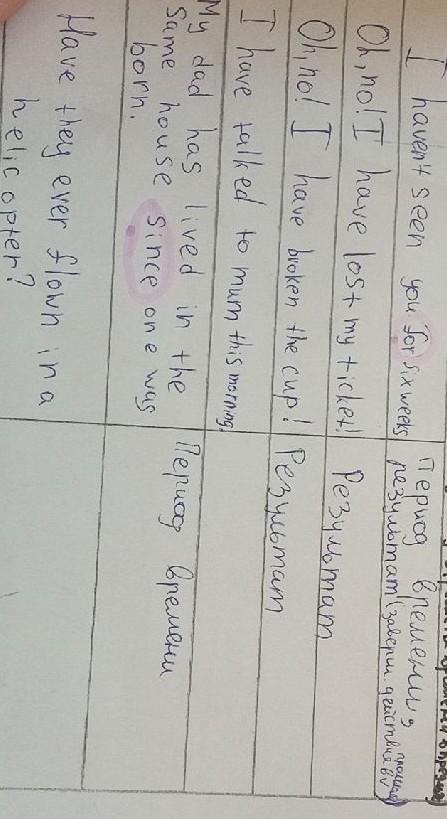 I haven't seen you for six weeks
Период времени,
результат (заверш. действия в
прошлом)
Oh, no! I have lost my ticket!
Результат
Oh, no! I have broken the cup!
Результат
I have talked to mum this morning.
My dad has lived in the
same house since one was
born.
Период времени
Have they ever flown in a
helicopter?